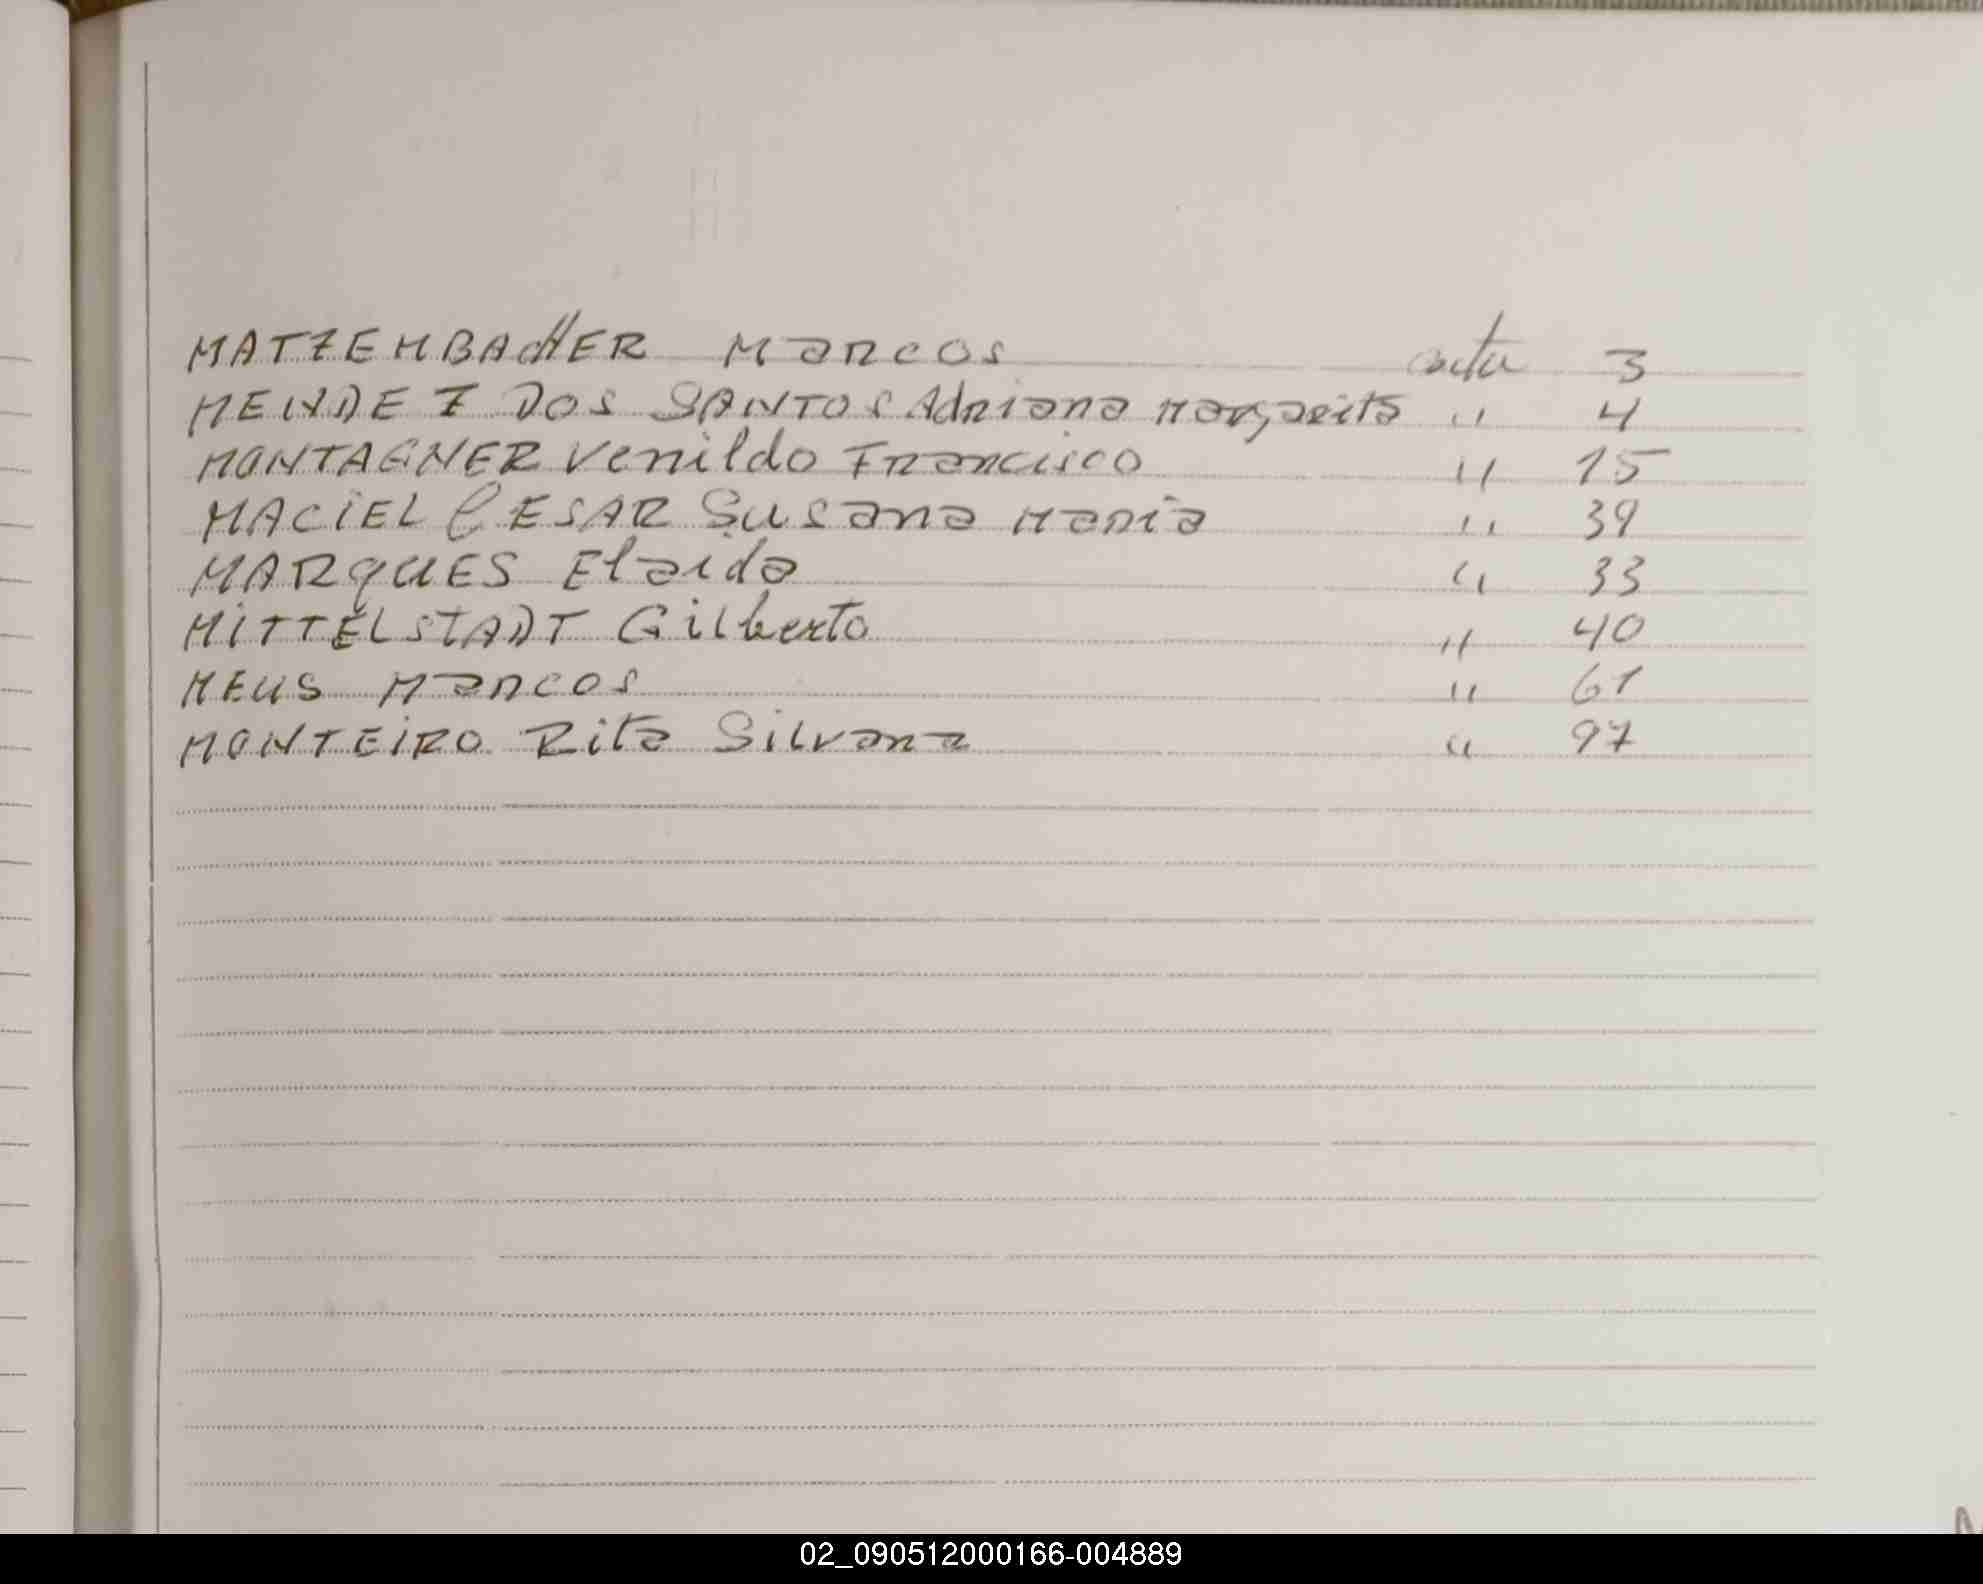 MATZEMBACHER Marcos acta 3
MENDEZ DOS SANTOS Adriana Margarita " 4
MONTAGNER Venildo Francisco " 15
MACIEL CESAR Susana Maria " 39
MARQUES Elaida " 33
MITTELSTADT Gilberto " 40
MEUS Marcos " 61
MONTEIRO Rita Silvana " 97
02_090512000166-004889